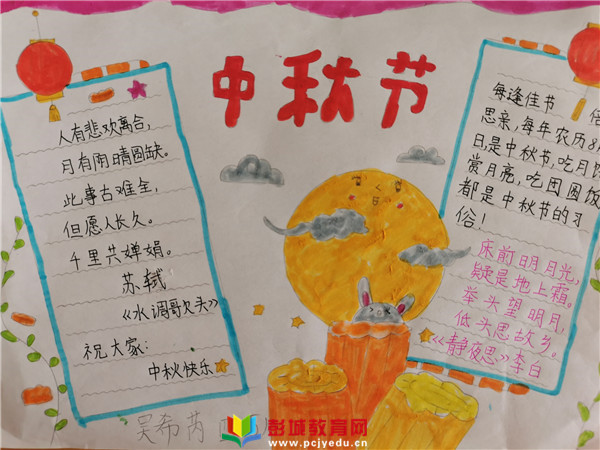 中秋节
人有悲欢离合,
月有阴晴圆缺。
此事古难全,
但愿人长久。
千里共婵娟。
苏轼
《水调歌头》
祝大家:
中秋快乐
每逢佳节 倍
思亲,每年农历8月
日,是中秋节,吃月饼
赏月亮,吃团圆饭
都是中秋节的习
俗!
床前明月光,
疑是地上霜。
举头望明月,
低头思故乡。
《静夜思》李白
吴希芮
彭城教育网
www.pcjyedu.cn